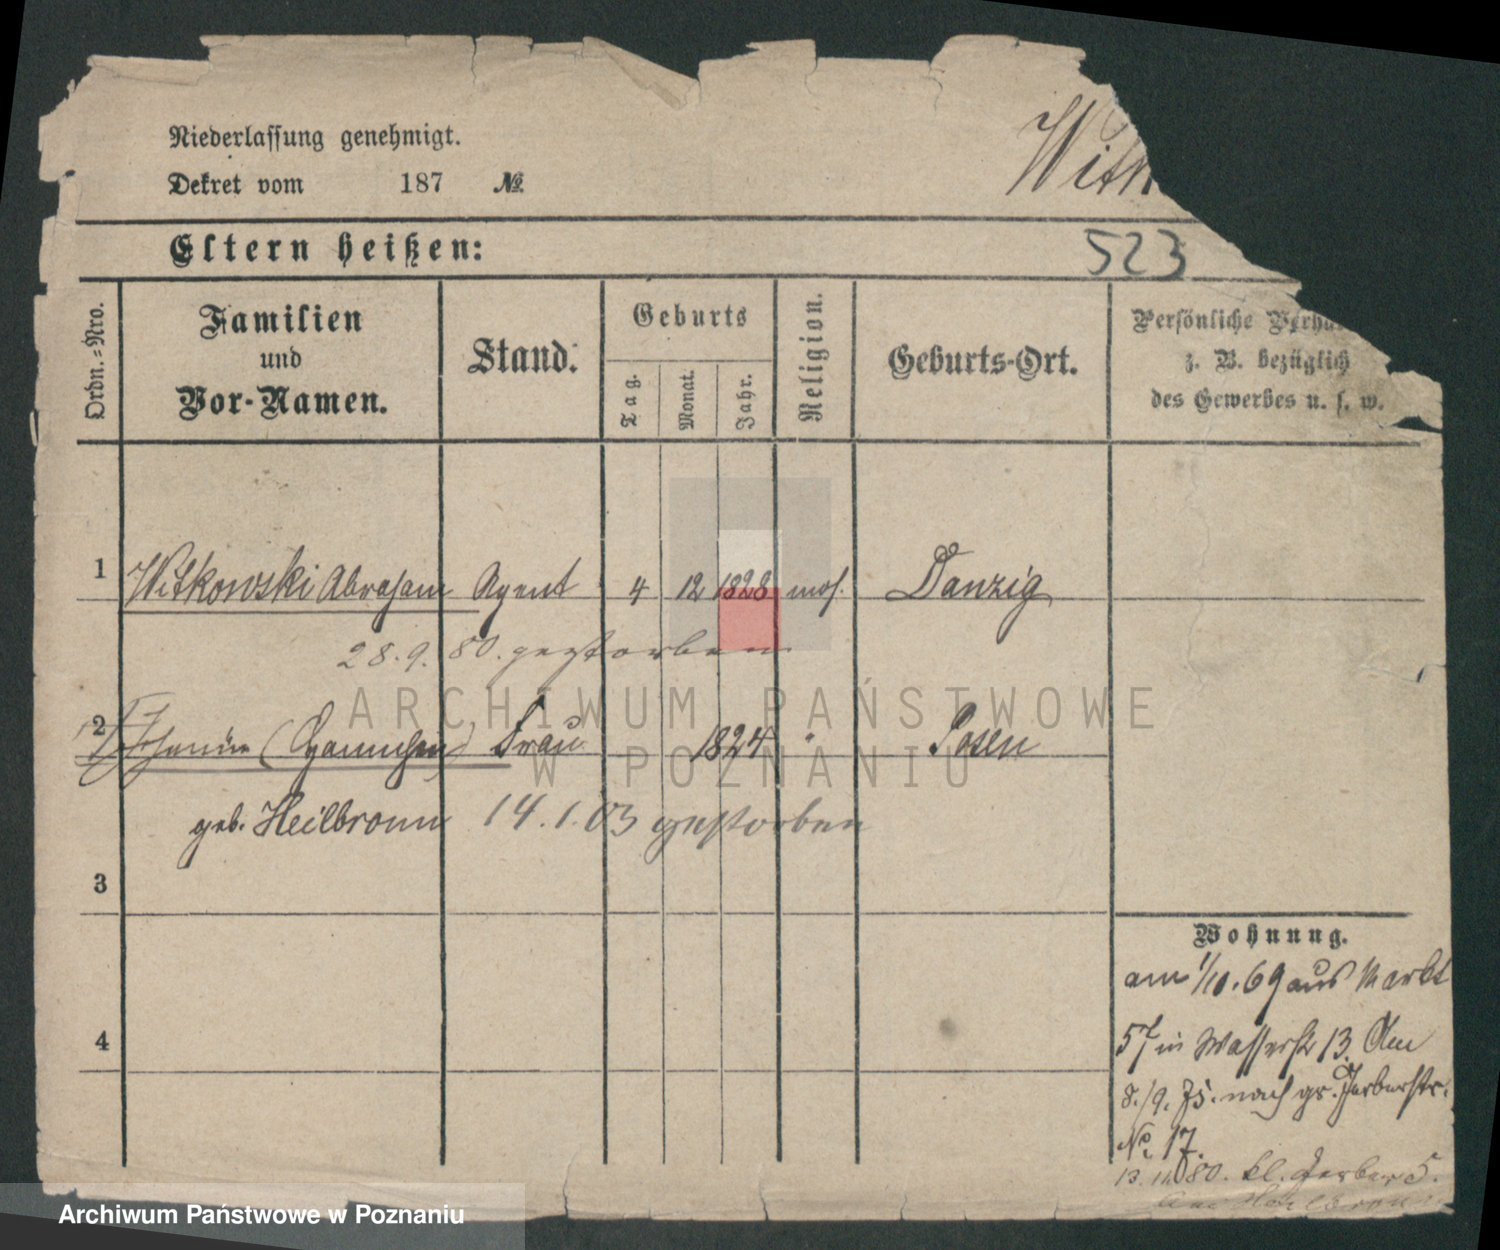 Niederlassung genehmigt.
Dekret vom 187 №
Witk
Eltern heißen:
523
Ordn.-Nro.
Familien
und
Vor-Namen.
Stand.
Geburts
Tag.
Monat.
Jahr.
Religion.
Geburts-Ort.
Persönliche Verhä
z. B. bezüglich
des Gewerbes u. s. w.
1 Witkowski Abraham Agent 4 12 1828 mos. Danzig
28.9.80. gestorben
ARCHIWUM PAŃSTWOWE
W POZNANIU
2 (Hannchen) Frau 1824 " Posen
geb. Heilbronn 14.1.03 gestorben
3
4
Wohnung.
am 1/10.69 aus Markt
57 in Wasserstr 13. Am
8./9. 75. nach gr. Gerberstr.
No. 17.
13.11.80. kl. Gerber 5.
Heilbronn
Archiwum Państwowe w Poznaniu